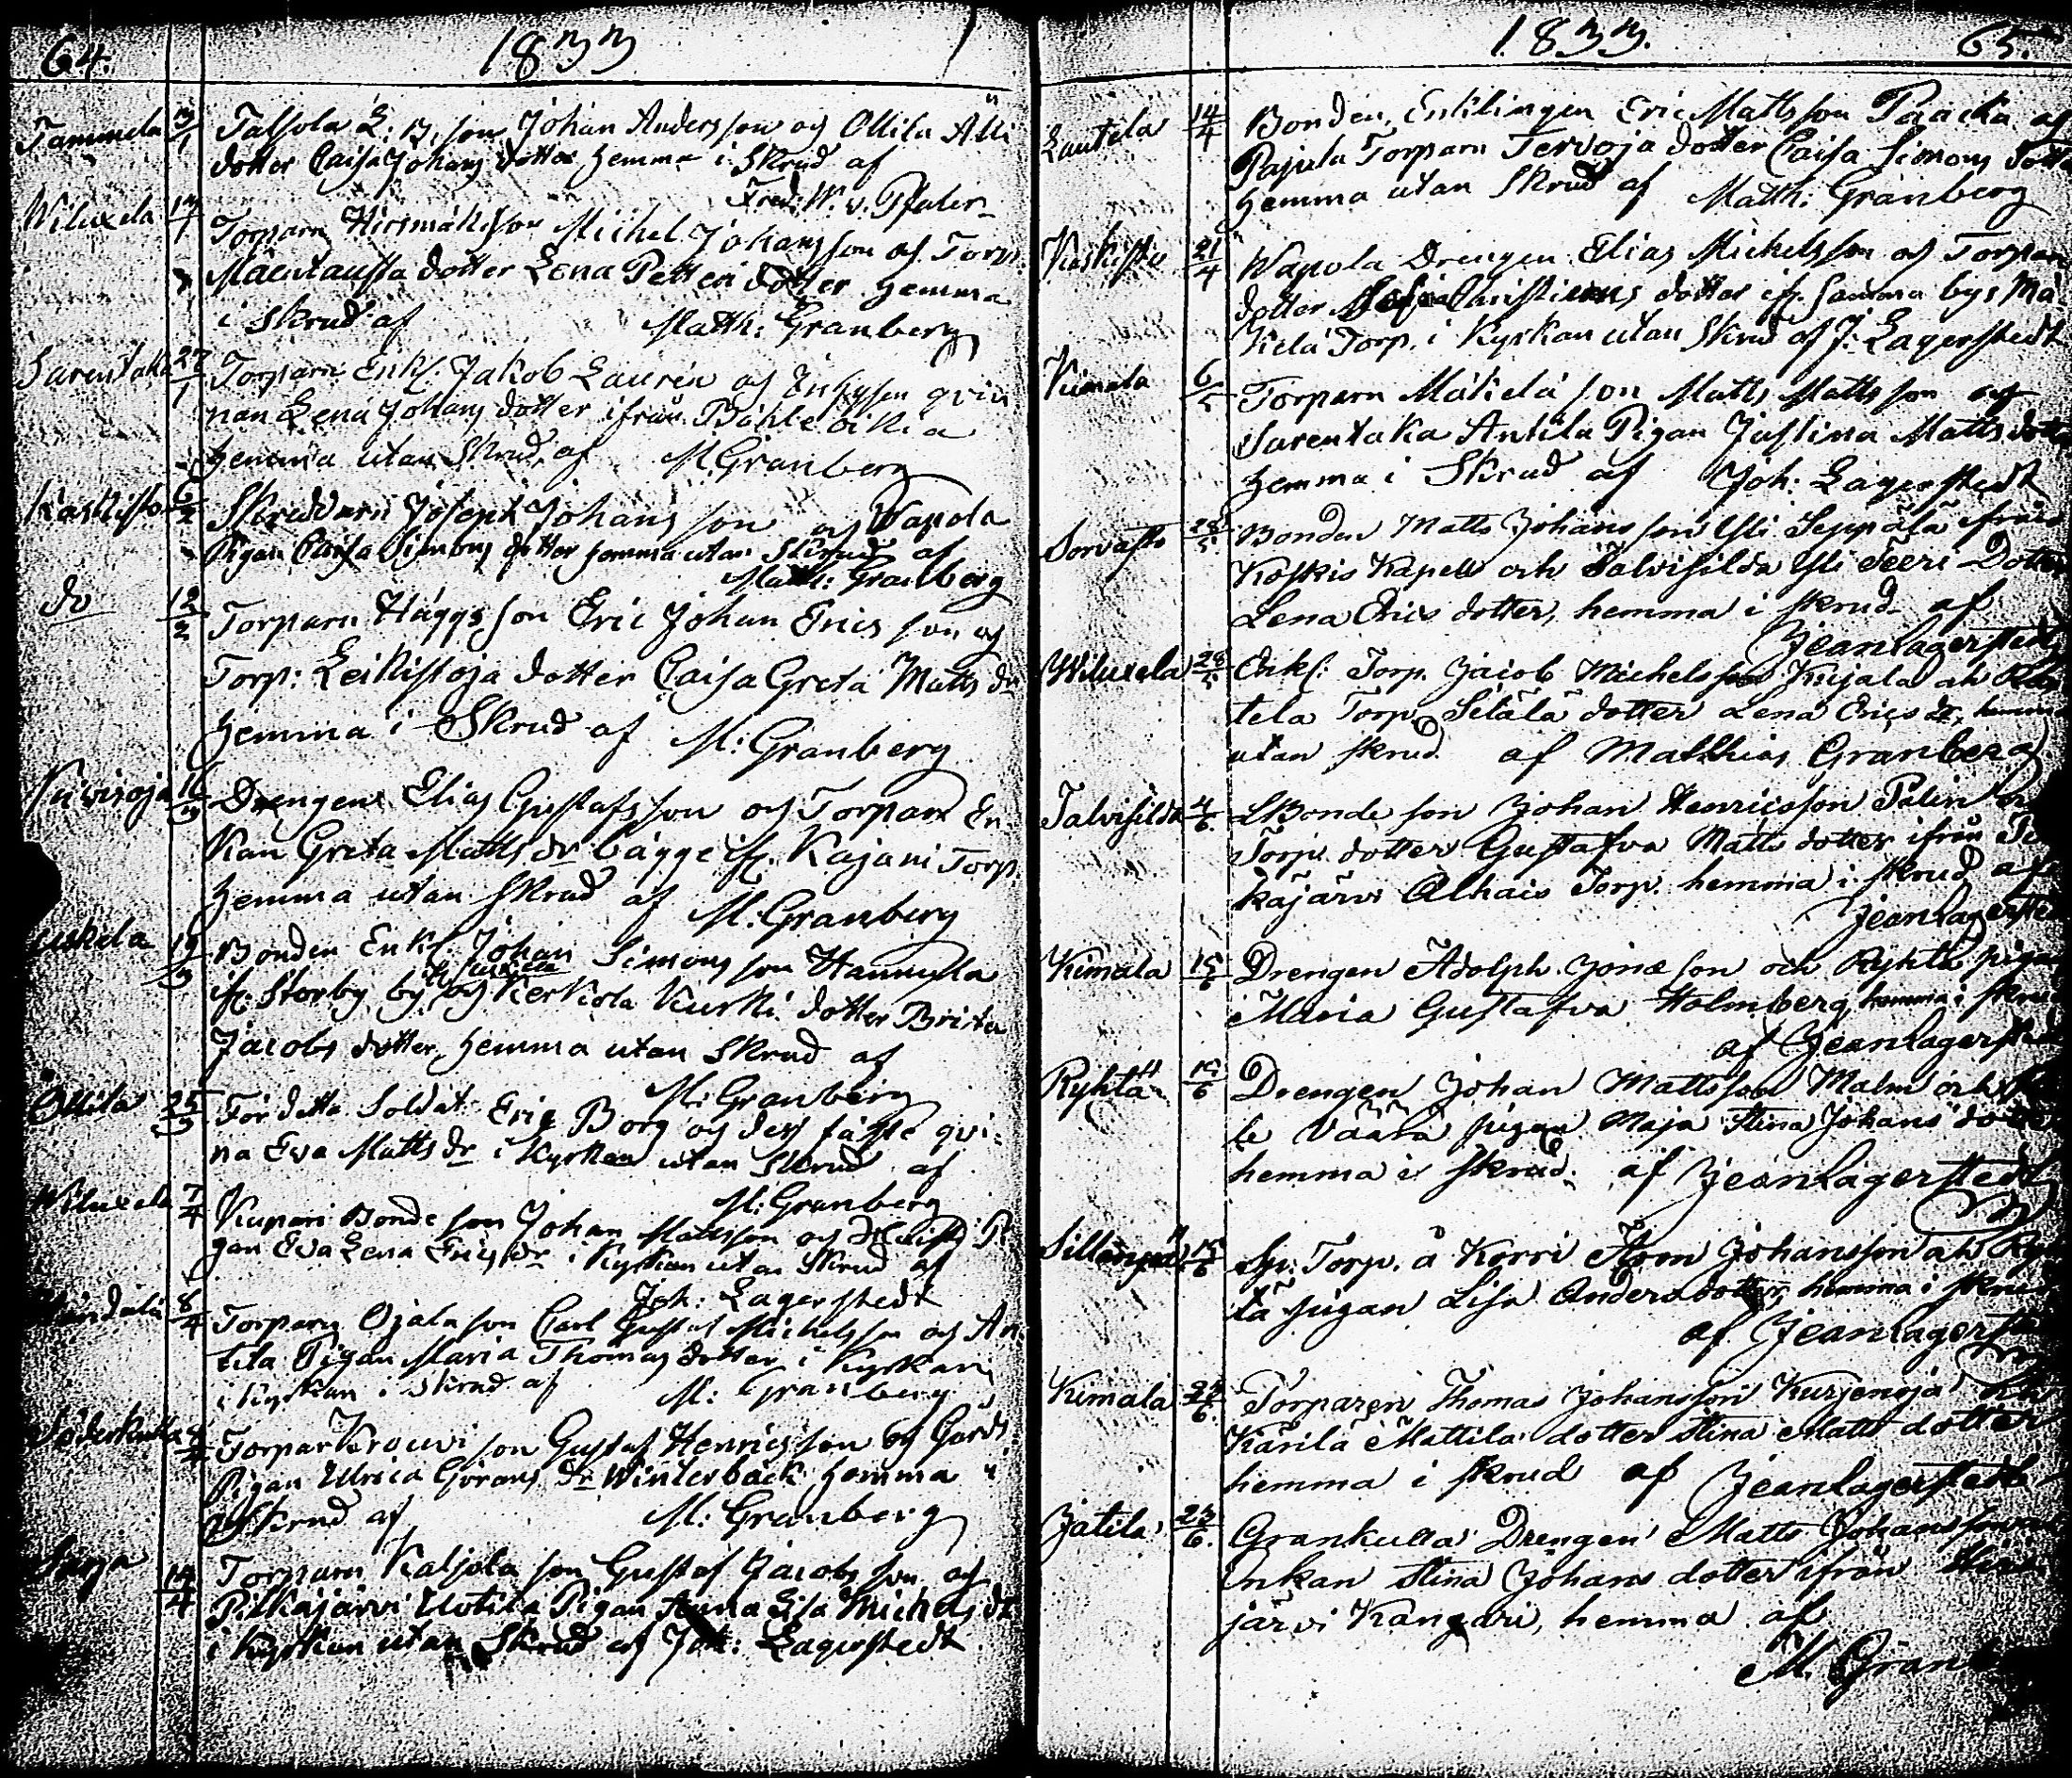 64. 1833
Tammela 13/1 Talsola L: B. son Johan Andersson og Ollila Alli
dotter Caisa Johans dotter hemma i Skrud af
Fred: W. v. Pfaler
Wiluxela 17/1 Torparn Hirsmäki son Michel Johansson og Torp.
Mäentausta dotter Lena Petteri dotter hemma
i Skrud af Matth: Granberg
Sarentaka 27/1 Torparn Enkl: Jakob Laurén og Inhyses qvin
nan Lena Johans dotter ifrån
hemma utan Skrud af M. Granberg
Kaskisto 6/2 Skreddarn Joseph Johans son og Wapola
Pigan Caisa Simons dotter hemma utan Skrud af
Matth: Granberg
do 12/2 Torparn Häggs son Eric Johan Erics son og
Torp: Leikistoja dotter Caisa Greta Matts dr
hemma i Skrud af M: Granberg
Kuivisoja 16/3 Drengen Elias Gustafs son og Torpare En
kan Greta Matts dr bägge if. Kajani Torp
hemma utan Skrud af M: Granberg
19/3 Bonden Enkl. Johan Simons son Hannula
if. Storby by og Kerkola Kurki dotter Brita
Jacobs dotter, hemma utan Skrud af
M: Granberg
Ollila 25/3 För detta Soldat Eric Borg og des fäste qvi-
na Eva Matts dr i Kyrkan utan Skrud af
M: Granberg
Wiluxela 7/4 Kupari Bonde son Johan Mattsson og Pi
gan Eva Lena Erics dr i Kyrkan utan Skrud af
Joh: Lagerstedt
8/4 Torparn Ojala son Carl Gustaf Michelsson og An
tila Pigan Maria Thomas dotter i Kyrkan
i Kyrkan i Skrud af M: Granberg
Söderkulla 8/4 Torpar Krouvi son Gustaf Henrics son og Gårds
Pigan Ulrica Görans dr Winterbäck hemma
i Skrud af M: Granberg
14/4 Torparn Kaljola son Gustaf Jacobs son og
Pitkäjärvi Uotila Pigan Anna Lisa Michels dr
i Kyrkan utan Skrud af Joh: Lagerstedt
1833. 65.
Lautela 14/4 Bonden, Enklingen Eric Mattsson Paacka af
Pajula Torparn Tervoja dotter Caisa Simons dott
hemma utan Skrud af Matth: Granberg
Kaskisto 21/4 Wapola Drengen Elias Michelsson og Torpar
dotter Christians dotter if. samma bys Mä
kelä Torp. i Kyrkan utan Skrud af J: Lagerstedt
Kimala 6/5 Torparn Mäkelä son Matts Matts son og
Sarentaka Antila Pigan Justina Matts dott
hemma i Skrud af Joh: Lagerstedt
Sorvasto 28/5 Bonden Matts Johans son Yli Seppälä ifrån
Koskis Kapell och Talvisilda Yli Teeri Dotter
Lena Erics dotter, hemma i skrud af
Jean Lagerstedt
Wiluxela 28/5 Enkl: Torp. Jacob Michelsson Kujala och
tela Torp. Setälä dotter Lena Erics dr, hemma
utan skrud af Matthias Granberg
Talvisilda 4/6. LBonde son Johan Henricsson Palin
Torp. dotter Gustafva Matts dotter ifrån
kajärvi Alhais Torp. hemma i skrud af
Jean Lagerstedt
Kimala 15/6 Drengen Adolph Jonæ son och Ryhtä pigan
Maria Gustafva Holmberg, hemma i skrud
af Jean Lagerstedt
Ryhtä 15/6 Drengen Johan Mattsson Malm och
le Väärä pigan Maja Stina Johans dotter
hemma i skrud. af Jean Lagerstedt
Sillanpää 15/6 Sp: Torp. å Korri Aron Johansson och Ryh
tä pigan Lisa Anders dotter, hemma i skrud
af Jean Lagerstedt
Kimala 24/6. Torparen Thomas Johansson Kurjenoja
Kärilä Mattila dotter Stina Matts dotter
hemma i skrud af Jean Lagerstedt
Jatila 23/6. Grankulla Drengen Matts Johansson
Enkan Stina Johans dotter ifrån
järvi Kangari, hemma af
M. Granb